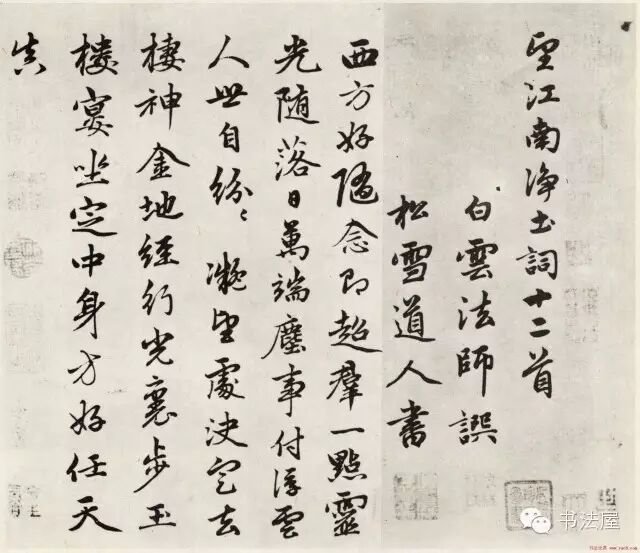 望江南淨土詞十二首
白雲法師譔
松雪道人書
西方好隨念即超羣一點靈
光隨落日萬端塵事付浮雲
人世自紛〻凝望處決定去
棲神金地經行光裏步玉
樓宴坐定中身方好任天
真
书法屋
书法世界 www.yac8.com